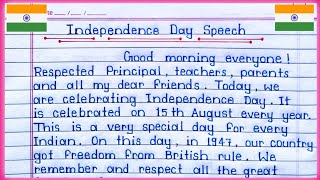 te __/__/__
Independence Day Speech
Good morning everyone!
Respected Principal, teachers, parents
and all my dear friends. Today, we
are celebrating Independence Day. It
is celebrated on 15th August every year.
This is a very special day for every
Indian. On this day, in 1947, our country
got freedom from British rule. We
remember and respect all the great